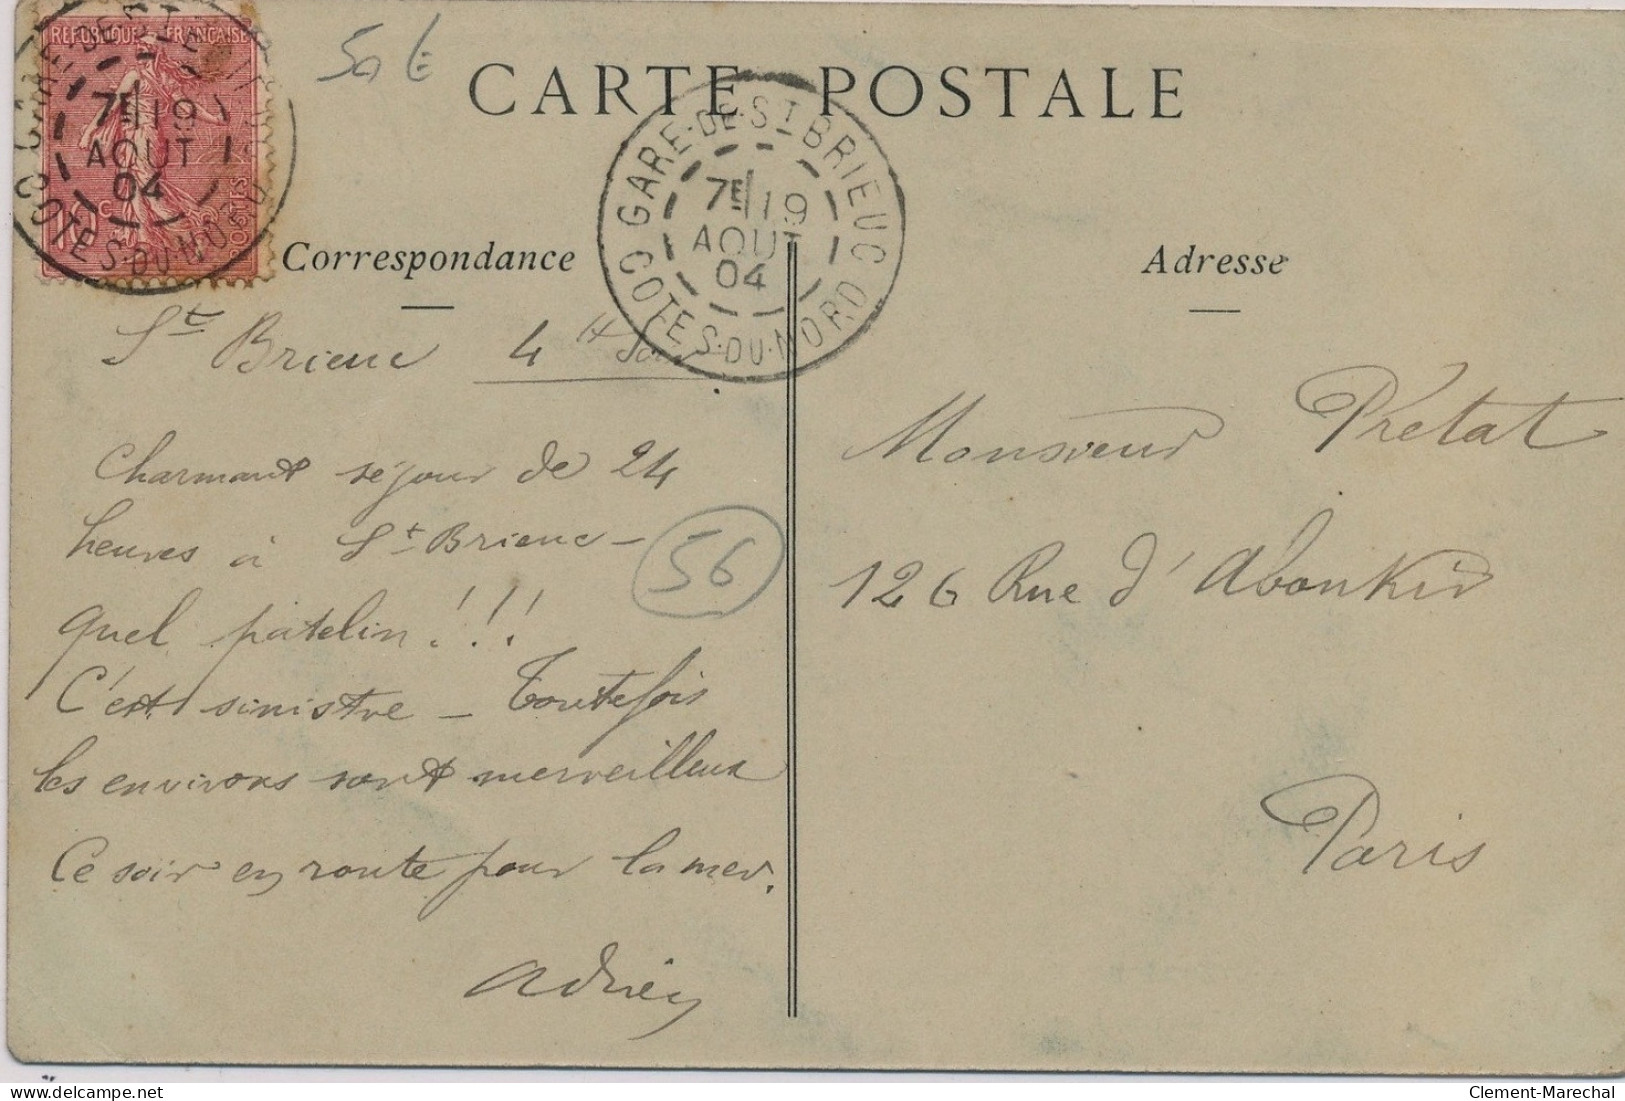 REPUBLIQUE FRANÇAISE
10c
POSTES
7E/19
AOUT
04
COTES·DU·NORD
50 €
CARTE POSTALE
GARE·DE·ST BRIEUC
7E/19
AOUT
04
COTES·DU·NORD
Correspondance
Adresse
St Brieuc 4 H Soir
Charmant séjour de 24
heures à St Brieuc –
quel patelin!!!
C'est sinistre – Toutefois
les environs sont merveilleux
Ce soir en route pour la mer.
Adrien
56
Monsieur Prétat
126 Rue d'Aboukir
Paris
Clement-Marechal